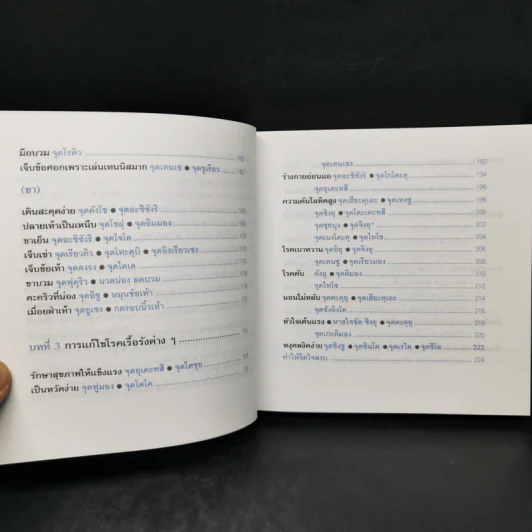 มือบวม จุดโรคิว
เจ็บข้อศอกเพราะเล่นเทนนิสมาก จุดเทนเซ ● จุดชูเรียว
(ขา)
เดินสะดุดง่าย จุดคังโช ● จุดอะชิซังริ
ปลายเท้าเป็นเหน็บ จุดโชฝุ ● จุดอิมมอง
ขาเย็น จุดอะชิซังริ ● จุดโจโค
เจ็บเข่า จุดเรียวคิว ● จุดโทะคุบิ ● จุดอิงเรียวเซง
เจ็บข้อเท้า จุดคงรง ● จุดไคเค
ขาบวม จุดฟุคุริว ● นวดน่อง ลดบวม
ตะคริวที่น่อง จุดอิชู ● หมุนข้อเท้า
เมื่อยฝ่าเท้า จุดยูเซง ● กดรอบนิ้วเท้า
บทที่ 3 การแก้ไขโรคเรื้อรังต่าง ๆ
รักษาสุขภาพให้แข็งแรง จุดยุเคะทสึ ● จุดไดชุย
เป็นหวัดง่าย จุดฟูมอง ● จุดโคโค
จุดเทนเซง 192
ร่างกายอ่อนแอ จุดอะชิซังริ ● จุดโกโคะคุ 194
จุดยุเคะทสึ 196
ความดันโลหิตสูง จุดเฮียะคุเอะ ● จุดเทงชู 198
จุดชิงยุ ● จุดโคะเคะทสึ 200
จุดชุยบุง ● จุดจิงยุ 202
จุดเนงโคะคุ ● จุดไทโช 204
โรคเบาหวาน จุดอิยุ ● จุดจิงยุ 206
จุดเทนชู ● จุดเรียวมอง 208
โรคตับ คังยุ ● จุดคิมอง 210
จุดไทโช 212
นอนไม่หลับ จุดคะคุยุ ● จุดเฮียะคุเอะ 214
จุดซังอิงโค 216
หัวใจเต้นแรง ● หายใจขัด ชิงยุ ● จุดคะคุยุ 218
จุดเกะคิมอง 220
หงุดหงิดง่าย จุดชิงชู ● จุดชินโด ● จุดเงไต ● จุดชิโอ 222
ทำให้จิตใจสงบ 224